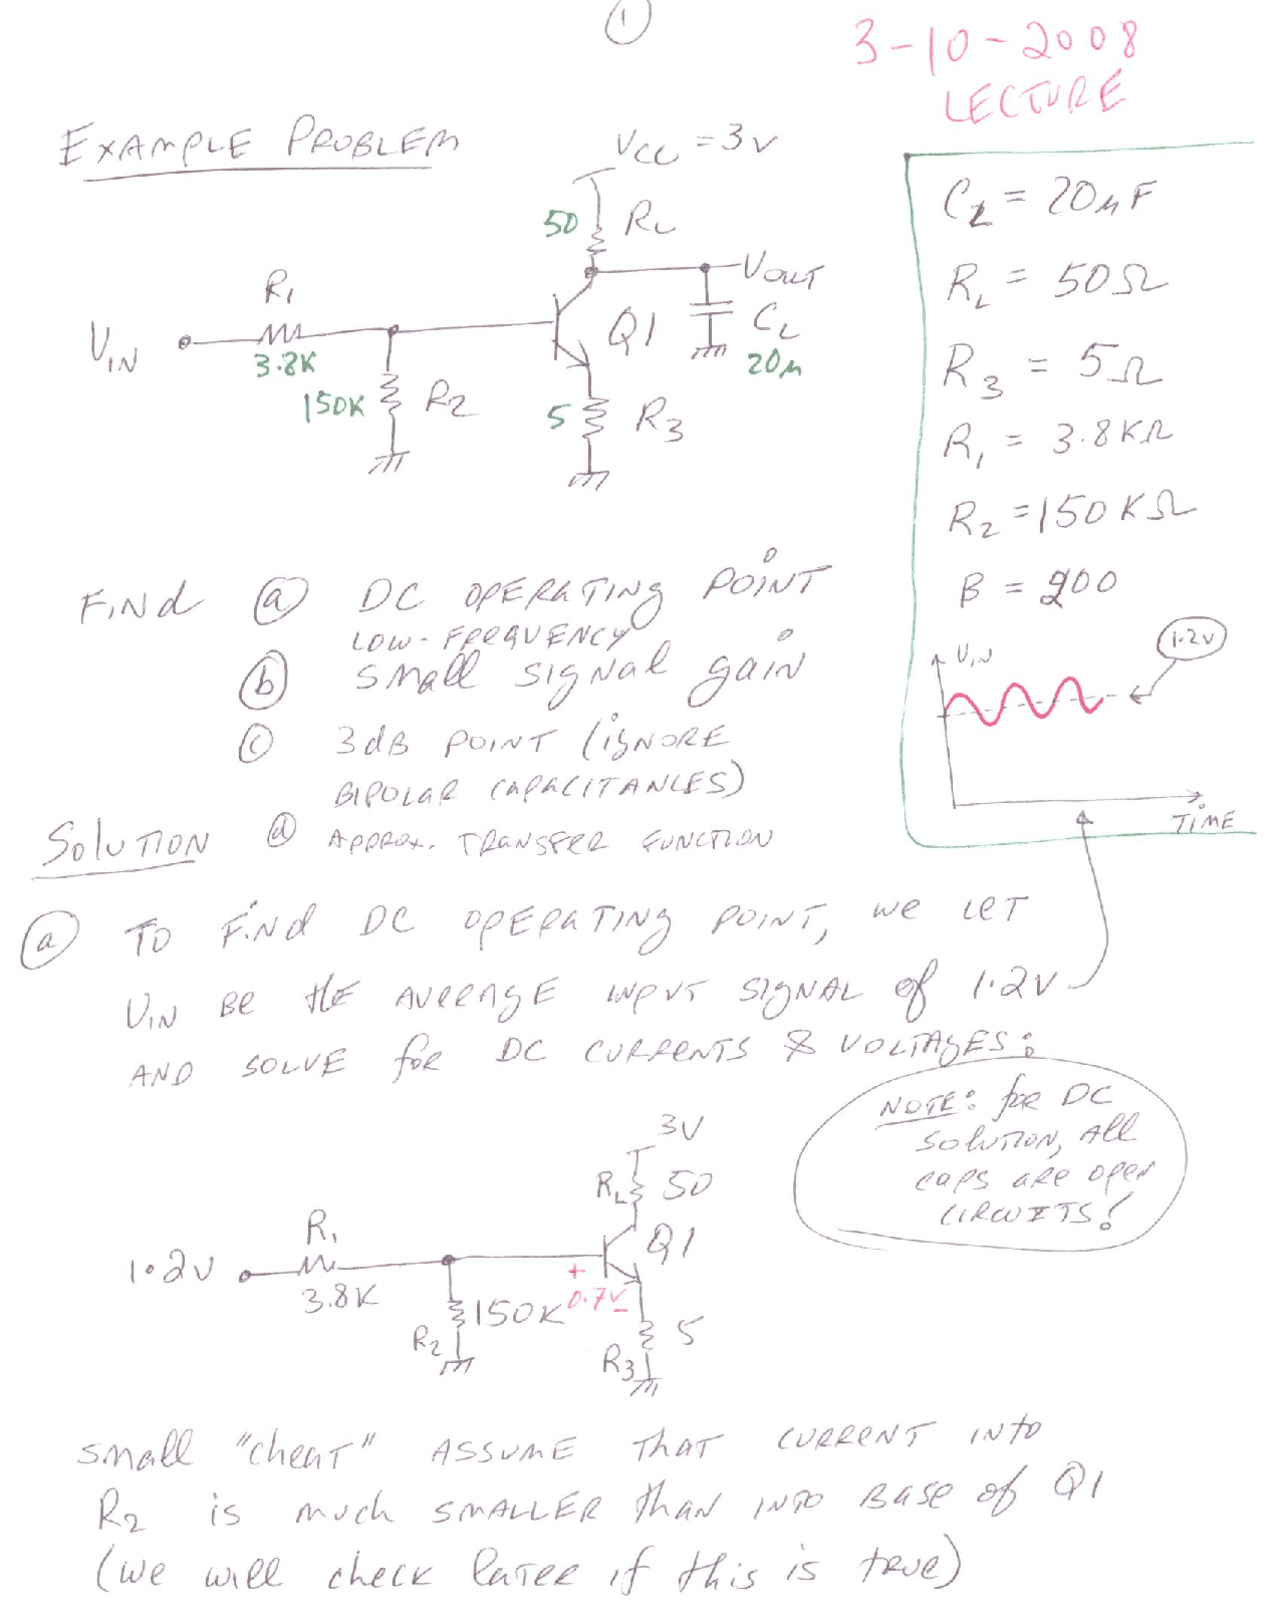 1
3-10-2008
LECTURE
EXAMPLE PROBLEM
VCC = 3V
50 RL
VOUT
R1
VIN
3.8K
Q1
CL
20μ
150K R2
5 R3
CL = 20μF
RL = 50Ω
R3 = 5Ω
R1 = 3.8KΩ
R2 = 150KΩ
B = 200
VIN
1.2V
TIME
FIND (a) DC OPERATING POINT
LOW-FREQUENCY
(b) SMALL SIGNAL GAIN
(c) 3dB POINT (IGNORE
BIPOLAR CAPACITANCES)
SOLUTION (d) APPROX. TRANSFER FUNCTION
(a) TO FIND DC OPERATING POINT, WE LET
VIN BE THE AVERAGE INPUT SIGNAL OF 1.2V
AND SOLVE FOR DC CURRENTS & VOLTAGES:
NOTE: FOR DC
SOLUTION, ALL
CAPS ARE OPEN
CIRCUITS!
3V
RL 50
R1
Q1
1.2V
3.8K
+
0.7V
-
150K
R2
5
R3
SMALL "CHEAT" ASSUME THAT CURRENT INTO
R2 IS MUCH SMALLER THAN INTO BASE OF Q1
(WE WILL CHECK LATER IF THIS IS TRUE)